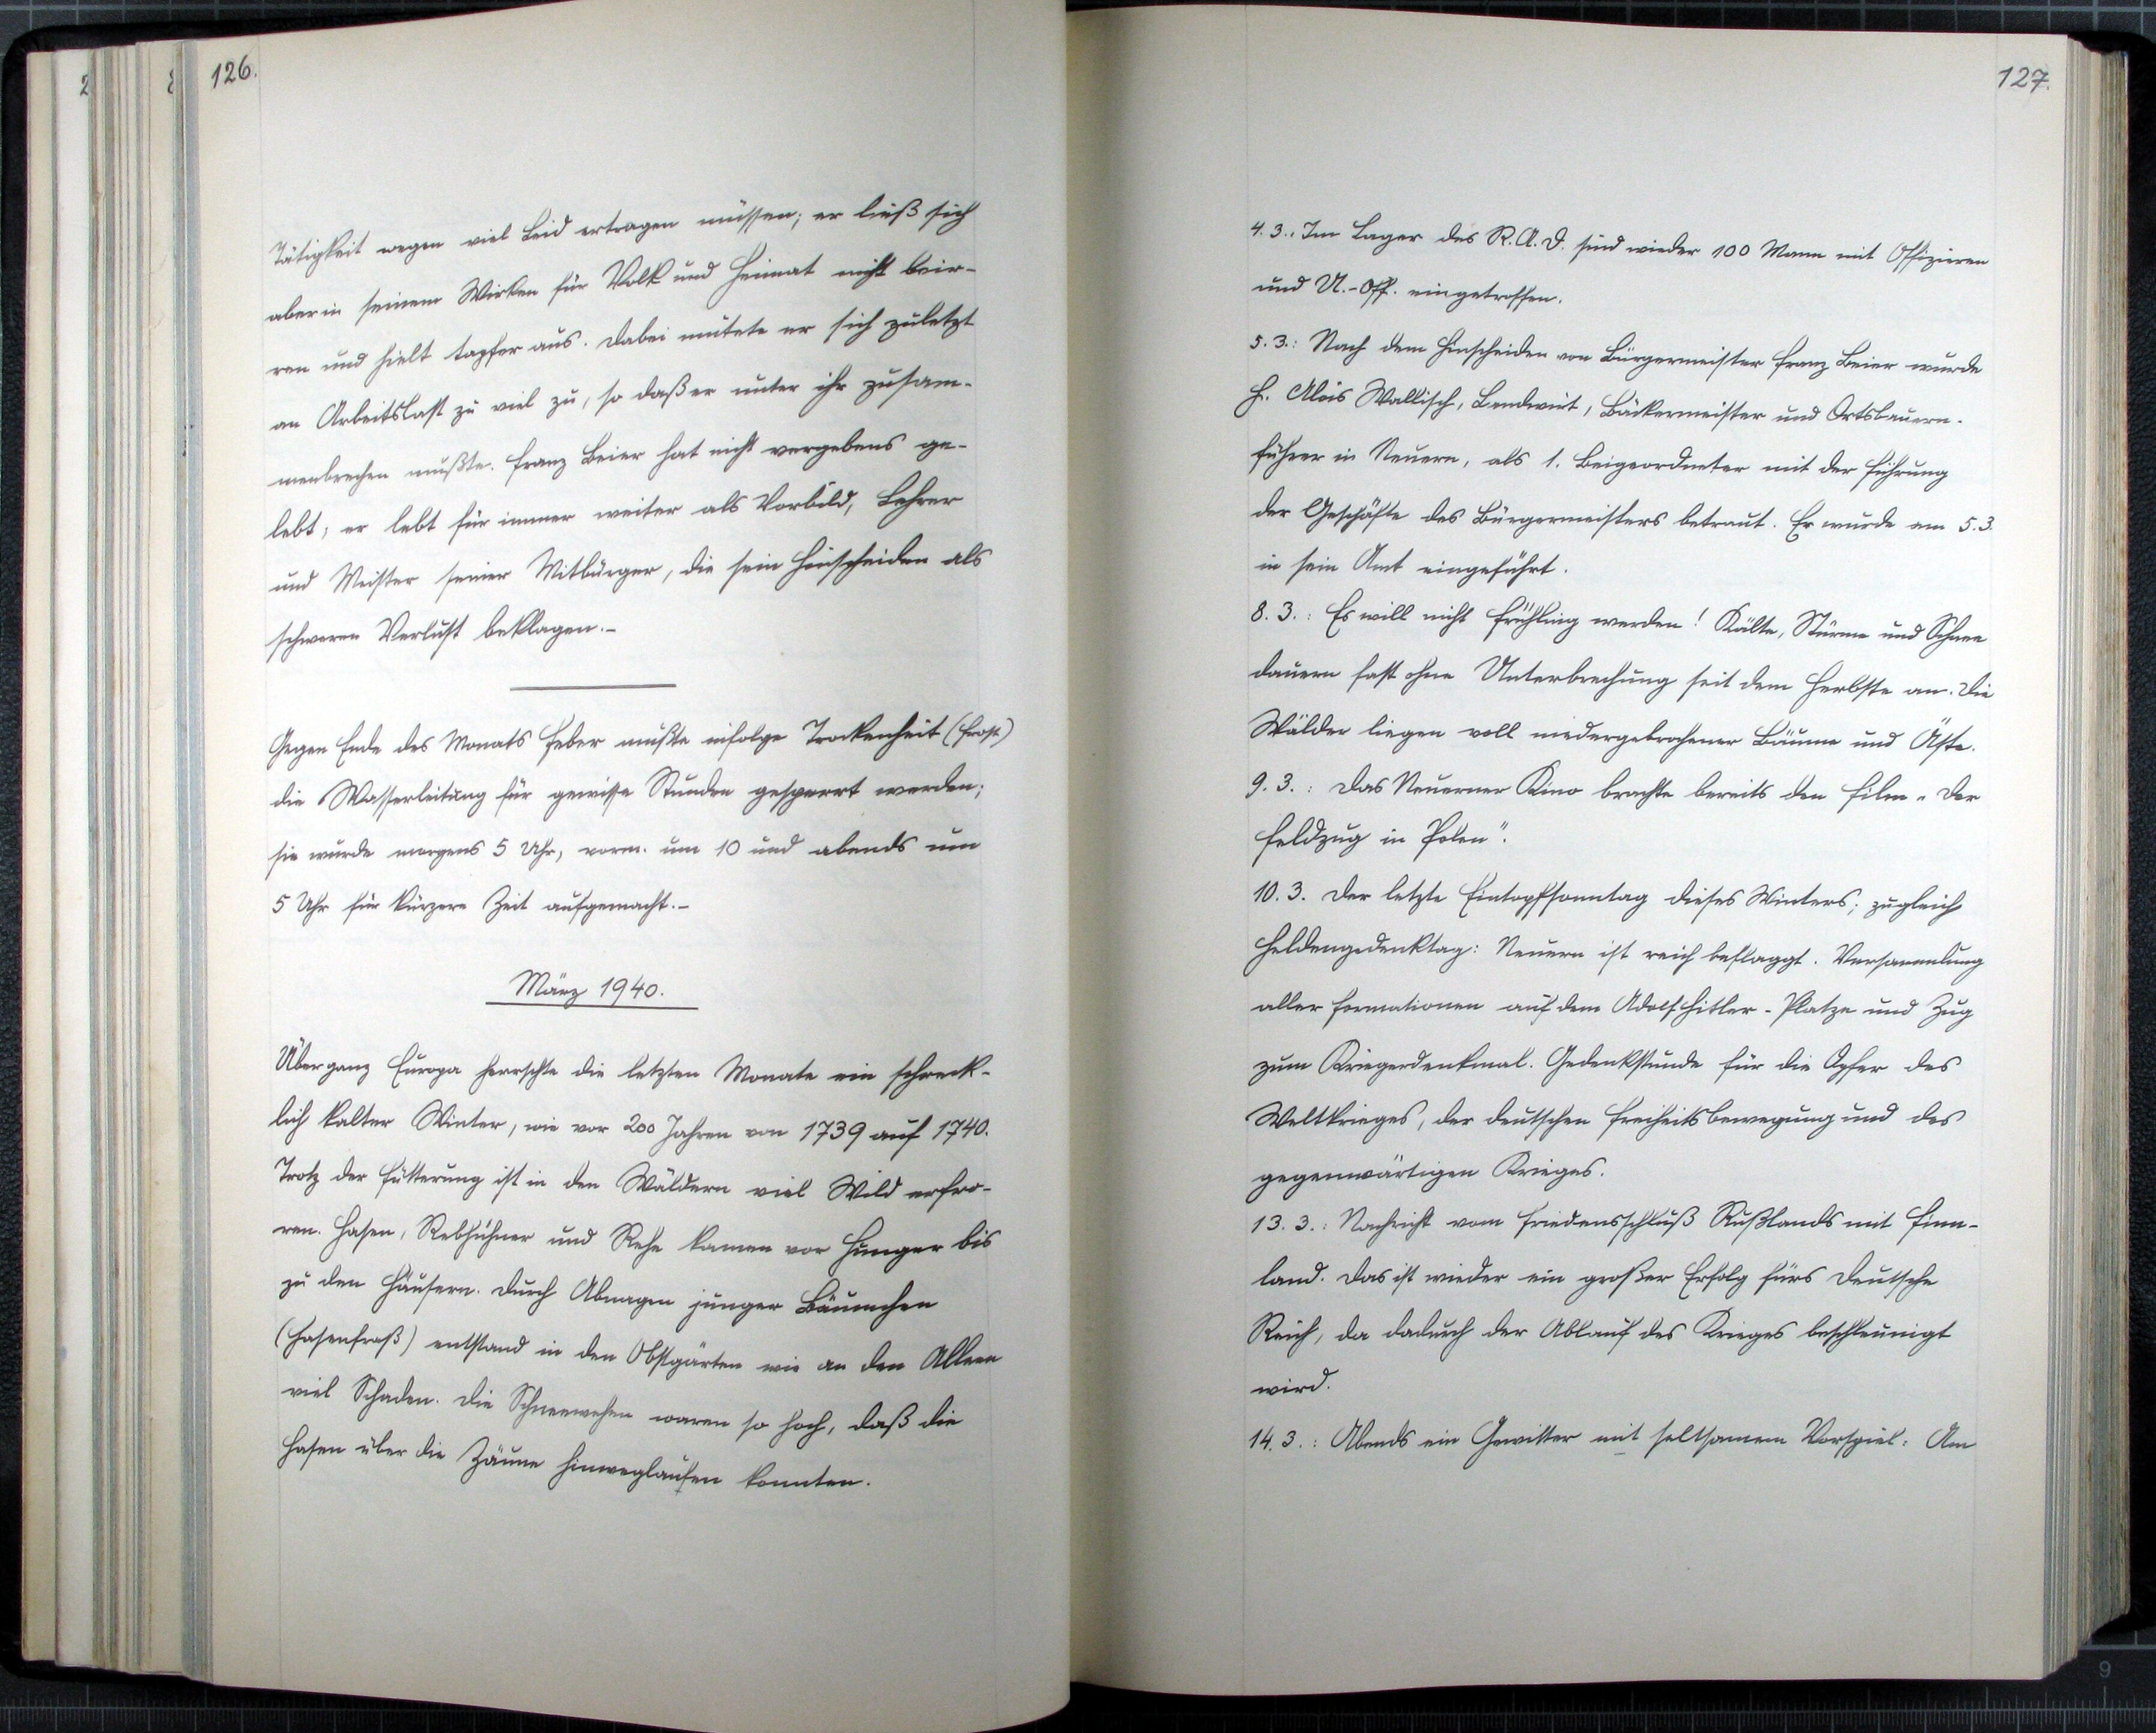 126.
Tätigkeit wegen viel Leid ertragen müssen; er ließ sich
aber in seinem Wirken für Volk und Heimat nicht beir-
ren und hielt tapfer aus. Dabei mutete er sich zuletzt
an Arbeitslast zu viel zu, so daß er unter ihr zusam-
menbrechen mußte. Franz Beier hat nicht vergebens ge-
lebt; er lebt für immer weiter als Vorbild, Lehrer
und Meister seiner Mitbürger, die sein Hinscheiden als
schweren Verlust beklagen.-
Gegen Ende des Monats Feber mußte infolge Trockenheit (Frost)
die Wasserleitung für gewisse Stunden gesperrt werden;
sie wurde morgens 5 Uhr, vorm. um 10 und abends um
5 Uhr für kürzere Zeit aufgemacht.-
März 1940.
Über ganz Europa herrschte die letzten Monate ein schreck-
lich kalter Winter, wie vor 200 Jahren von 1739 auf 1740.
Trotz der Fütterung ist in den Wäldern viel Wild erfro-
ren. Hasen, Rebhühner und Rehe kamen vor Hunger bis
zu den Häusern. Durch Abnagen junger Bäumchen
(Hasenfraß) entstand in den Obstgärten wie an den Alleen
viel Schaden. Die Schneewehen waren so hoch, daß die
Hasen über die Zäune hinweglaufen konnten.
127.
4. 3.: Im Lager des R.A.D. sind wieder 100 Mann mit Offizieren
und U.-Off. eingetroffen.
5. 3.: Nach dem Hinscheiden von Bürgermeister Franz Beier wurde
H. Alois Wallisch, Landwirt, Bäckermeister und Ortsbauern-
führer in Neuern, als 1. Beigeordneter mit der Führung
der Geschäfte des Bürgermeisters betraut. Er wurde am 5.3.
in sein Amt eingeführt.
8. 3.: Es will nicht Frühling werden! Kälte, Stürme und Schnee
dauern fast ohne Unterbrechung seit dem Herbste an. Die
Wälder liegen voll niedergebrochener Bäume und Äste.
9. 3.: Das Neuerner Kino brachte bereits den Film „Der
Feldzug in Polen".
10. 3. Der letzte Eintopfsonntag dieses Winters; zugleich
Heldengedenktag: Neuern ist reich beflaggt. Versammlung
aller Formationen auf dem Adolf Hitler-Platze und Zug
zum Kriegerdenkmal. Gedenkstunde für die Opfer des
Weltkrieges, der deutschen Freiheitsbewegung und des
gegenwärtigen Krieges.
13. 3.: Nachricht vom Friedensschluß Rußlands mit Finn-
land. Das ist wieder ein großer Erfolg fürs Deutsche
Reich, da dadurch der Ablauf des Krieges beschleunigt
wird.
14. 3.: Abends ein Gewitter mit seltsamem Vorspiel: Am
9